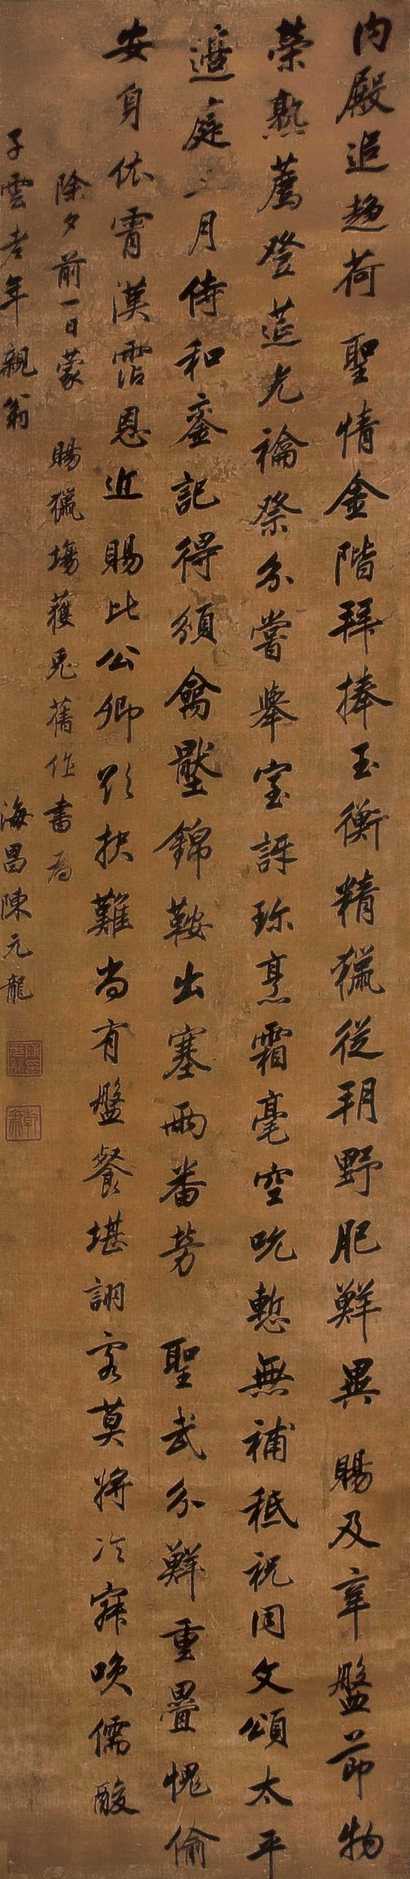 内殿追趨荷 聖情金階拜捧玉衡精獵從朔野肥鮮異 賜及辛盤節物
榮熟薦登筵先禴祭分嘗舉室訝珍烹霜毫空吮慙無補秪祝同文頌太平
邊庭三月侍和鑾記得頒禽壓錦鞍出塞兩番勞 聖武分鮮重疊愧偷
安身依霄漢霑恩近賜比公卿欲報難尚有盤餐堪詡客莫將冷寂咲儒酸
除夕前一日蒙 賜獵塲獲兔舊作書為
子雲老年親翁 海昌陳元龍